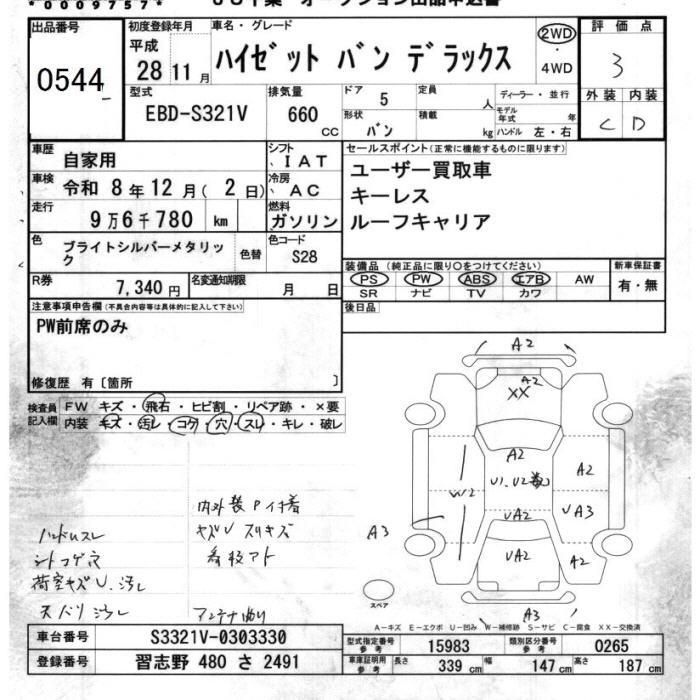 *0009757*
出品番号
0544
初度登録年月
平成
28 11月
車名・グレード
ハイゼット バン デラックス
2WD
4WD
評価点
3
外装 内装
C D
型式
EBD-S321V
排気量
660 CC
ドア 5
形状 バン
定員 人
積載 kg
ディーラー・並行
モデル年式 年
ハンドル 左・右
車歴 自家用
シフト IAT
車検 令和 8年12月(2日)
冷房 AC
走行 9万6千780 km
燃料 ガソリン
色 ブライトシルバーメタリック
色替
色コード S28
R券 7,340円
名変通知期限 月 日
セールスポイント(正常に機能するものに限ります)
ユーザー買取車
キーレス
ルーフキャリア
装備品(純正品に限り○をつけてください)
PS PW ABS エアB AW
SR ナビ TV カワ
新車保証書
有・無
後日品
注意事項申告欄(不具合内容等は具体的に記入して下さい)
PW前席のみ
修復歴 有〔箇所 〕
検査員記入欄
FW キズ・飛石・ヒビ割・リペア跡・×要
内装 キズ・汚レ・コゲ・穴・スレ・キレ・破レ
内外装
キズU スリキズ
ハンドルスレ
シートコゲ穴
荷室キズU、汚レ
天バリ汚レ
A2
A2
XX
A2
U1、U2
A2
W2
UA2
UA3
A3
UA2
A2
A3
スペア
A-キズ E-エクボ U-凹み W-補修跡 S-サビ C-腐食 XX-交換済
車台番号 S3321V-0303330
登録番号 習志野 480 さ 2491
型式指定番号参考 15983
類別区分番号参考 0265
車庫証明用参考 長さ 339 cm 幅 147 cm 高さ 187 cm